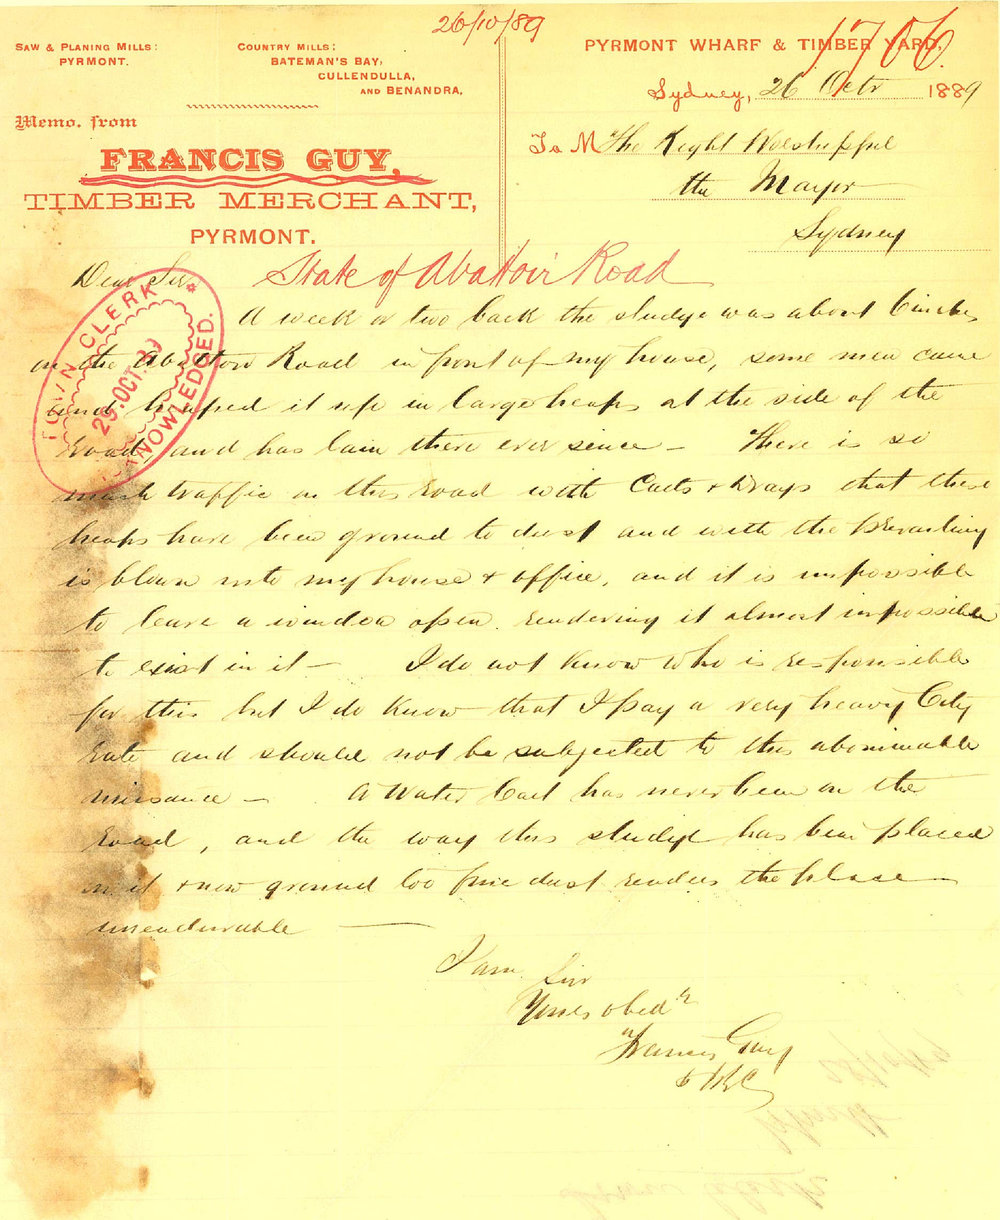 26/10/89
1706.
SAW & PLANING MILLS:
PYRMONT.
COUNTRY MILLS:
BATEMAN'S BAY,
CULLENDULLA,
AND BENANDRA.
PYRMONT WHARF & TIMBER YARD,
Sydney, 26 Octr 1889
Memo. from
FRANCIS GUY,
TIMBER MERCHANT,
PYRMONT.
To M The Right Worshipful
the Mayor
Sydney
Dear Sir
State of Abattoir Road
TOWN CLERK
29.OCT.89
ACKNOWLEDGED.
A week or two back the sludge was about 6 inches
on the Abattoir Road in front of my house, some men came
and heaped it up in large heaps at the side of the
road and has lain there ever since — There is so
much traffic on this road with Carts & Drays that these
heaps have been ground to dust and with the prevailing
is blown into my house & office, and it is impossible
to leave a window open rendering it almost impossible
to exist in it — I do not know who is responsible
for this but I do know that I pay a very heavy City
rate and should not be subjected to this abominable
nuisance — A Water Cart has never been on the
road, and the way this sludge has been placed
on it & now ground too fine dust renders the place
unendurable —
I am Sir
Yours obedt
Francis Guy